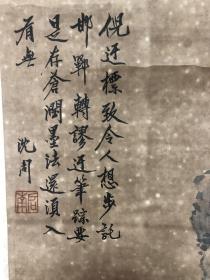 倪迂標致令人想步託
邯鄲轉謬迂筆踪要
是存蒼潤墨法還須入
有無
沈周